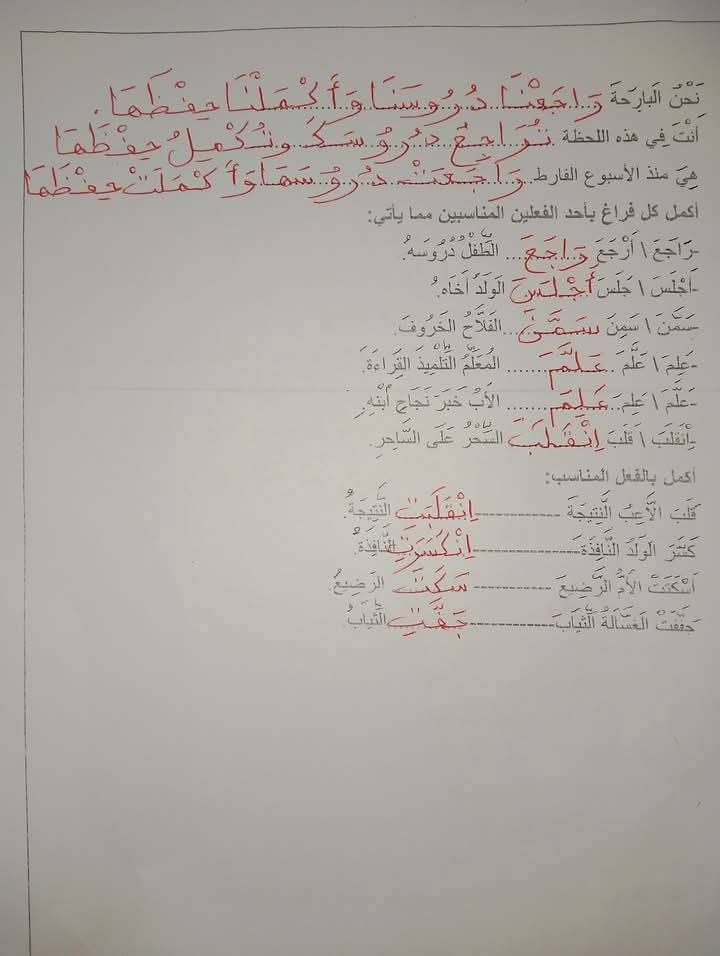 نَحْنُ البَارِحَةَ رَاجَعْنَا دُرُوسَنَا وَأَكْمَلْنَا حِفْظَهَا.
أَنْتَ فِي هذه اللحظة تُرَاجِعُ دُرُوسَكَ وتُكْمِلُ حِفْظَهَا
هِيَ منذ الأسبوع الفارط رَاجَعَتْ دُرُوسَهَا وَأَكْمَلَتْ حِفْظَهَا
أكمل كل فراغ بأحد الفعلين المناسبين مما يأتي:
-رَاجَعَ \ أَرْجَعَ رَاجَعَ .... الطِّفْلُ دُرُوسَهُ.
-أَجْلَسَ \ جَلَسَ أَجْلَسَ الوَلَدُ أَخَاهُ.
-سَمَّنَ \ سَمِنَ سَمَّنَ ....الفَلَّاحُ الخَرُوفَ.
-عَلِمَ \ عَلَّمَ ..عَلَّمَ....... المُعَلِّمُ التِّلْمِيذَ القِرَاءَةَ.
-عَلَّمَ \ عَلِمَ..عَلِمَ....... الأَبُ خَبَرَ نَجَاحِ ابْنِهِ.
-اِنْقَلَبَ \ قَلَبَ اِنْقَلَبَ السِّحْرُ عَلَى السَّاحِرِ.
أكمل بالفعل المناسب:
قَلَبَ الاَّعِبُ النَّتِيجَةَ ------------اِنْقَلَبَتِ النَّتِيجَةُ.
كَسَّرَ الوَلَدُ النَّافِذَةَ------------اِنْكَسَرَتِ النَّافِذَةُ.
أَسْكَتَتْ الأُمُّ الرَّضِيعَ ------------ سَكَتَ الرَضِيعُ.
جَفَّفَتْ الغَسَّالَةُ الثِّيَابَ------------جَفَّتِ الثِّيَابُ.